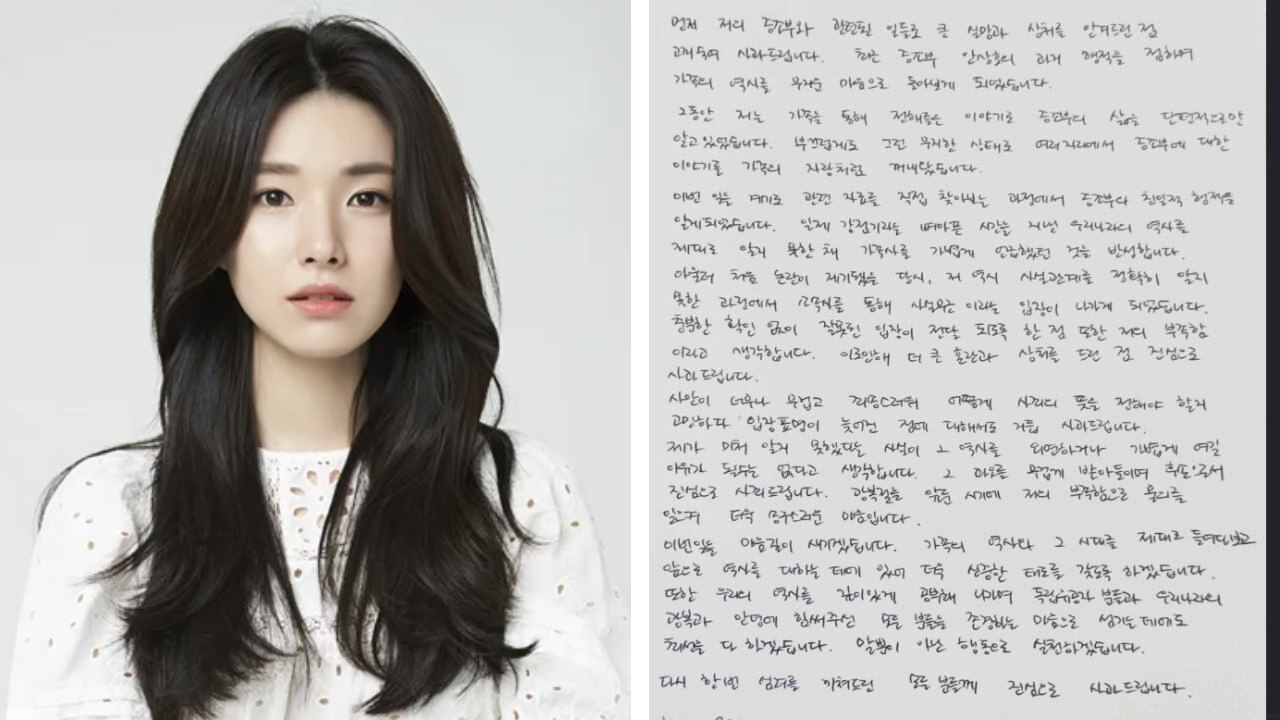 먼저 저의 증조부와 관련된 일들로 큰 실망과 상처를 안겨드린 점
고개숙여 사과드립니다. 최근 증조부 안상호의 과거 행적을 접하며
가족의 역사를 무거운 마음으로 돌아보게 되었습니다.
그동안 저는 가족을 통해 전해들은 이야기로 증조부의 삶을 단편적으로만
알고있었습니다. 부끄럽게도 그런 무지한 상태로 여러자리에서 증조부에 대한
이야기를 가족의 자랑처럼 꺼내왔습니다.
이번 일을 계기로 관련 자료를 직접 찾아보는 과정에서 증조부의 친일적 행적을
알게되었습니다. 일제 강점기라는 뼈아픈 시간을 지닌 우리나라의 역사를
제대로 알지 못한 채 가족사를 가볍게 언급했던 것을 반성합니다.
아울러 처음 논란이 제기됐을 당시, 저 역시 사실관계를 정확히 알지
못한 과정에서 소속사를 통해 사실무근 이라는 입장이 나가게 되었습니다.
충분한 확인 없이 잘못된 입장이 전달 되도록 한 점 또한 저의 부족함
이라고 생각합니다. 이로인해 더 큰 혼란과 상처를 드린 점 진심으로
사과드립니다.
사안이 너무나 무겁고 죄송스러워 어떻게 사죄의 뜻을 전해야 할지
고민하다 입장표명이 늦어진 점에 대해서도 거듭 사과드립니다.
제가 미처 알지 못했다는 사실이 그 역사를 외면하거나 가볍게 여길
이유가 될수는 없다고 생각합니다. 그 과오를 무겁게 받아들이며
진심으로 사죄드립니다. 광복절을 앞둔 시기에 저의 부족함으로 물의를
일으켜 더욱 송구스러운 마음입니다.
이번일을 마음깊이 새기겠습니다. 가족의 역사와 그 시대를 제대로 들여다보고
앞으로 역사를 대하는 데에 있어 더욱 신중한 태도를 갖도록 하겠습니다.
또한 우리의 역사를 깊이있게 공부해 나가며 독립유공자 분들과 우리나라의
광복과 안녕에 힘써주신 모든 분들을 존경하는 마음으로 섬기는데에도
최선을 다 하겠습니다. 말뿐이 아닌 행동으로 실천하겠습니다.
다시 한번 심려를 끼쳐드린 모든 분들께 진심으로 사과드립니다.